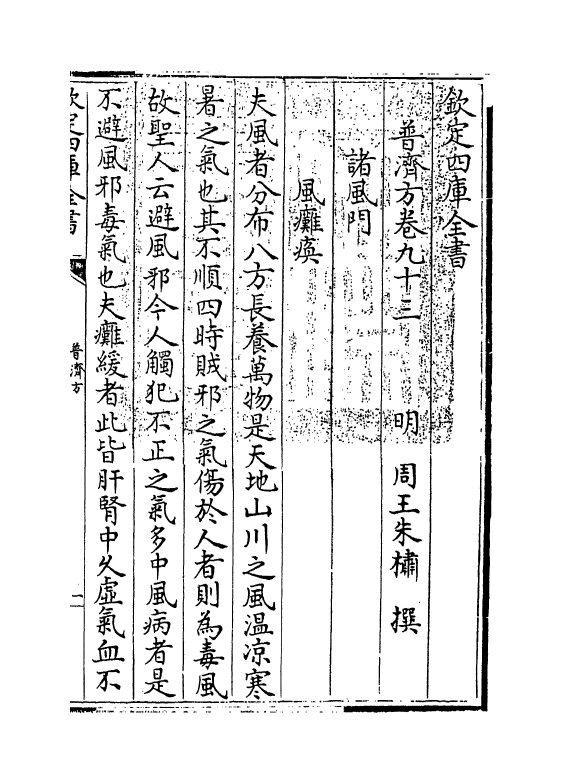 欽定四庫全書
普濟方卷九十三　明　周王朱橚　撰
諸風門
風癱瘓
夫風者分布八方長養萬物是天地山川之風温凉寒
暑之氣也其不順四時賊邪之氣傷於人者則為毒風
故聖人云避風邪今人觸犯不正之氣多中風病者是
不避風邪毒氣也夫癱緩者此皆肝腎中久虛氣血不
欽定四庫全書
普濟方
一